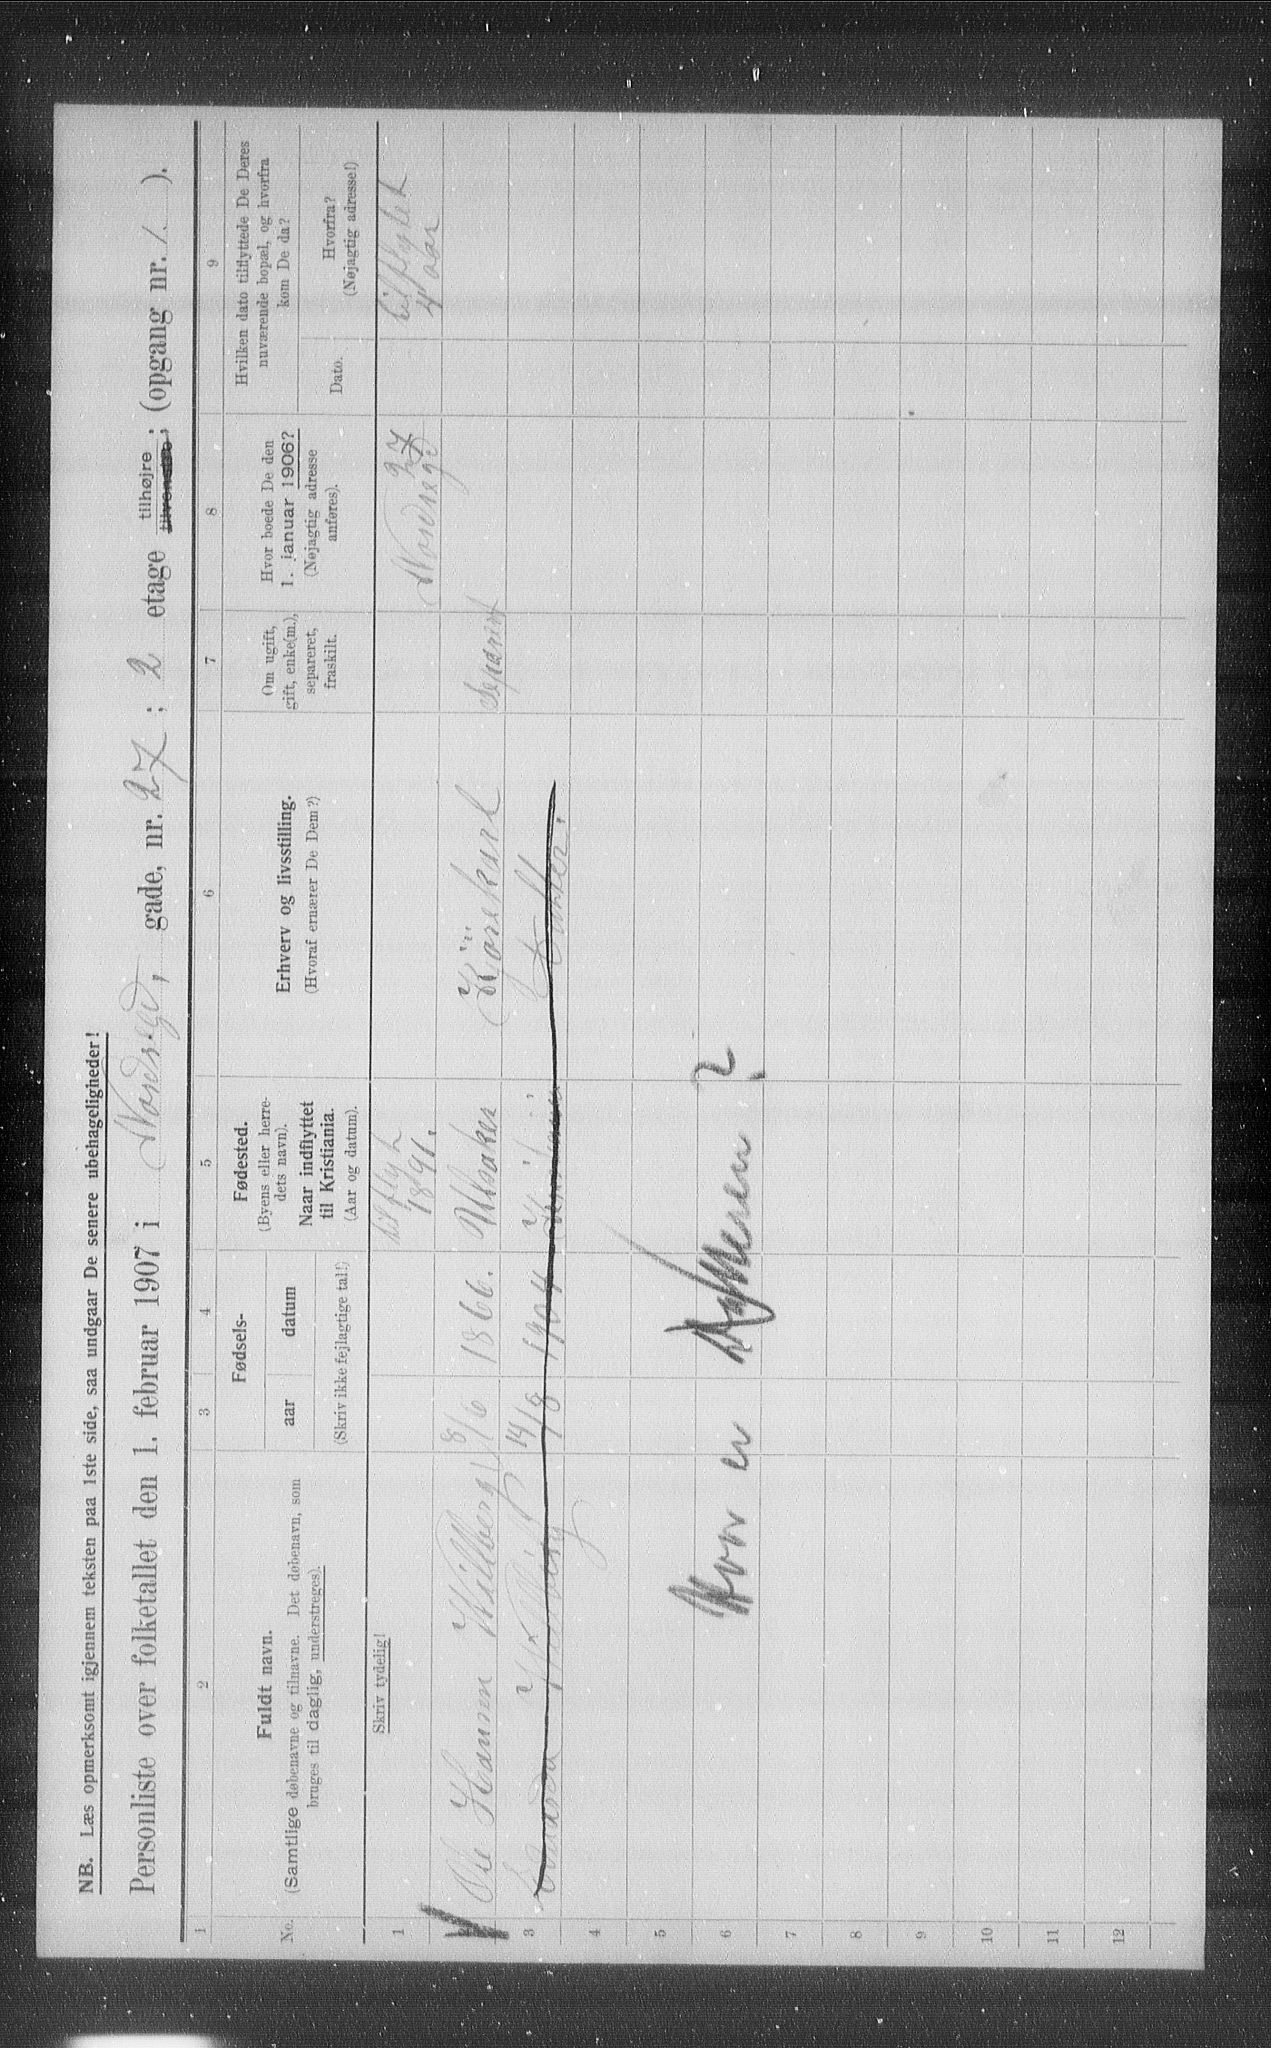 NB. Læs opmerksomt igjennem teksten paa 1ste side, saa undgaar De senere ubehageligheder!
Personliste over folketallet den 1. februar 1907 i Nordregd, gade, nr. 27; 2 etage tilhøjre; tilvenstre; (opgang nr. 1 ).
1 2 3 4 5 6 7 8 9
No.
Fuldt navn.
(Samtlige døbenavne og tilnavne. Det døbenavn, som
bruges til daglig, understreges).
Fødsels-
aar datum
(Skriv ikke fejlagtige tal!)
Fødested.
(Byens eller herre-
dets navn).
Naar indflyttet
til Kristiania.
(Aar og datum).
Erhverv og livsstilling.
(Hvoraf ernærer De Dem?)
Om ugift,
gift, enke(m.),
separeret,
fraskilt.
Hvor boede De den
1. januar 1906?
(Nøjagtig adresse
anføres).
Hvilken dato tilflyttede De Deres
nuværende bopæl, og hvorfra
kom De da?
Dato.
Hvorfra?
(Nøjagtig adresse!)
Skriv tydelig!
1 tilflyt 1891. Nordregd 27 tilflytet 4 aar
2 Ole Hansen 8/6 1866. Ulsaker Kjørekarl Separert
3 14/8 1904 Datter.
4
5
6 Hvor er ?
7
8
9
10
11
12